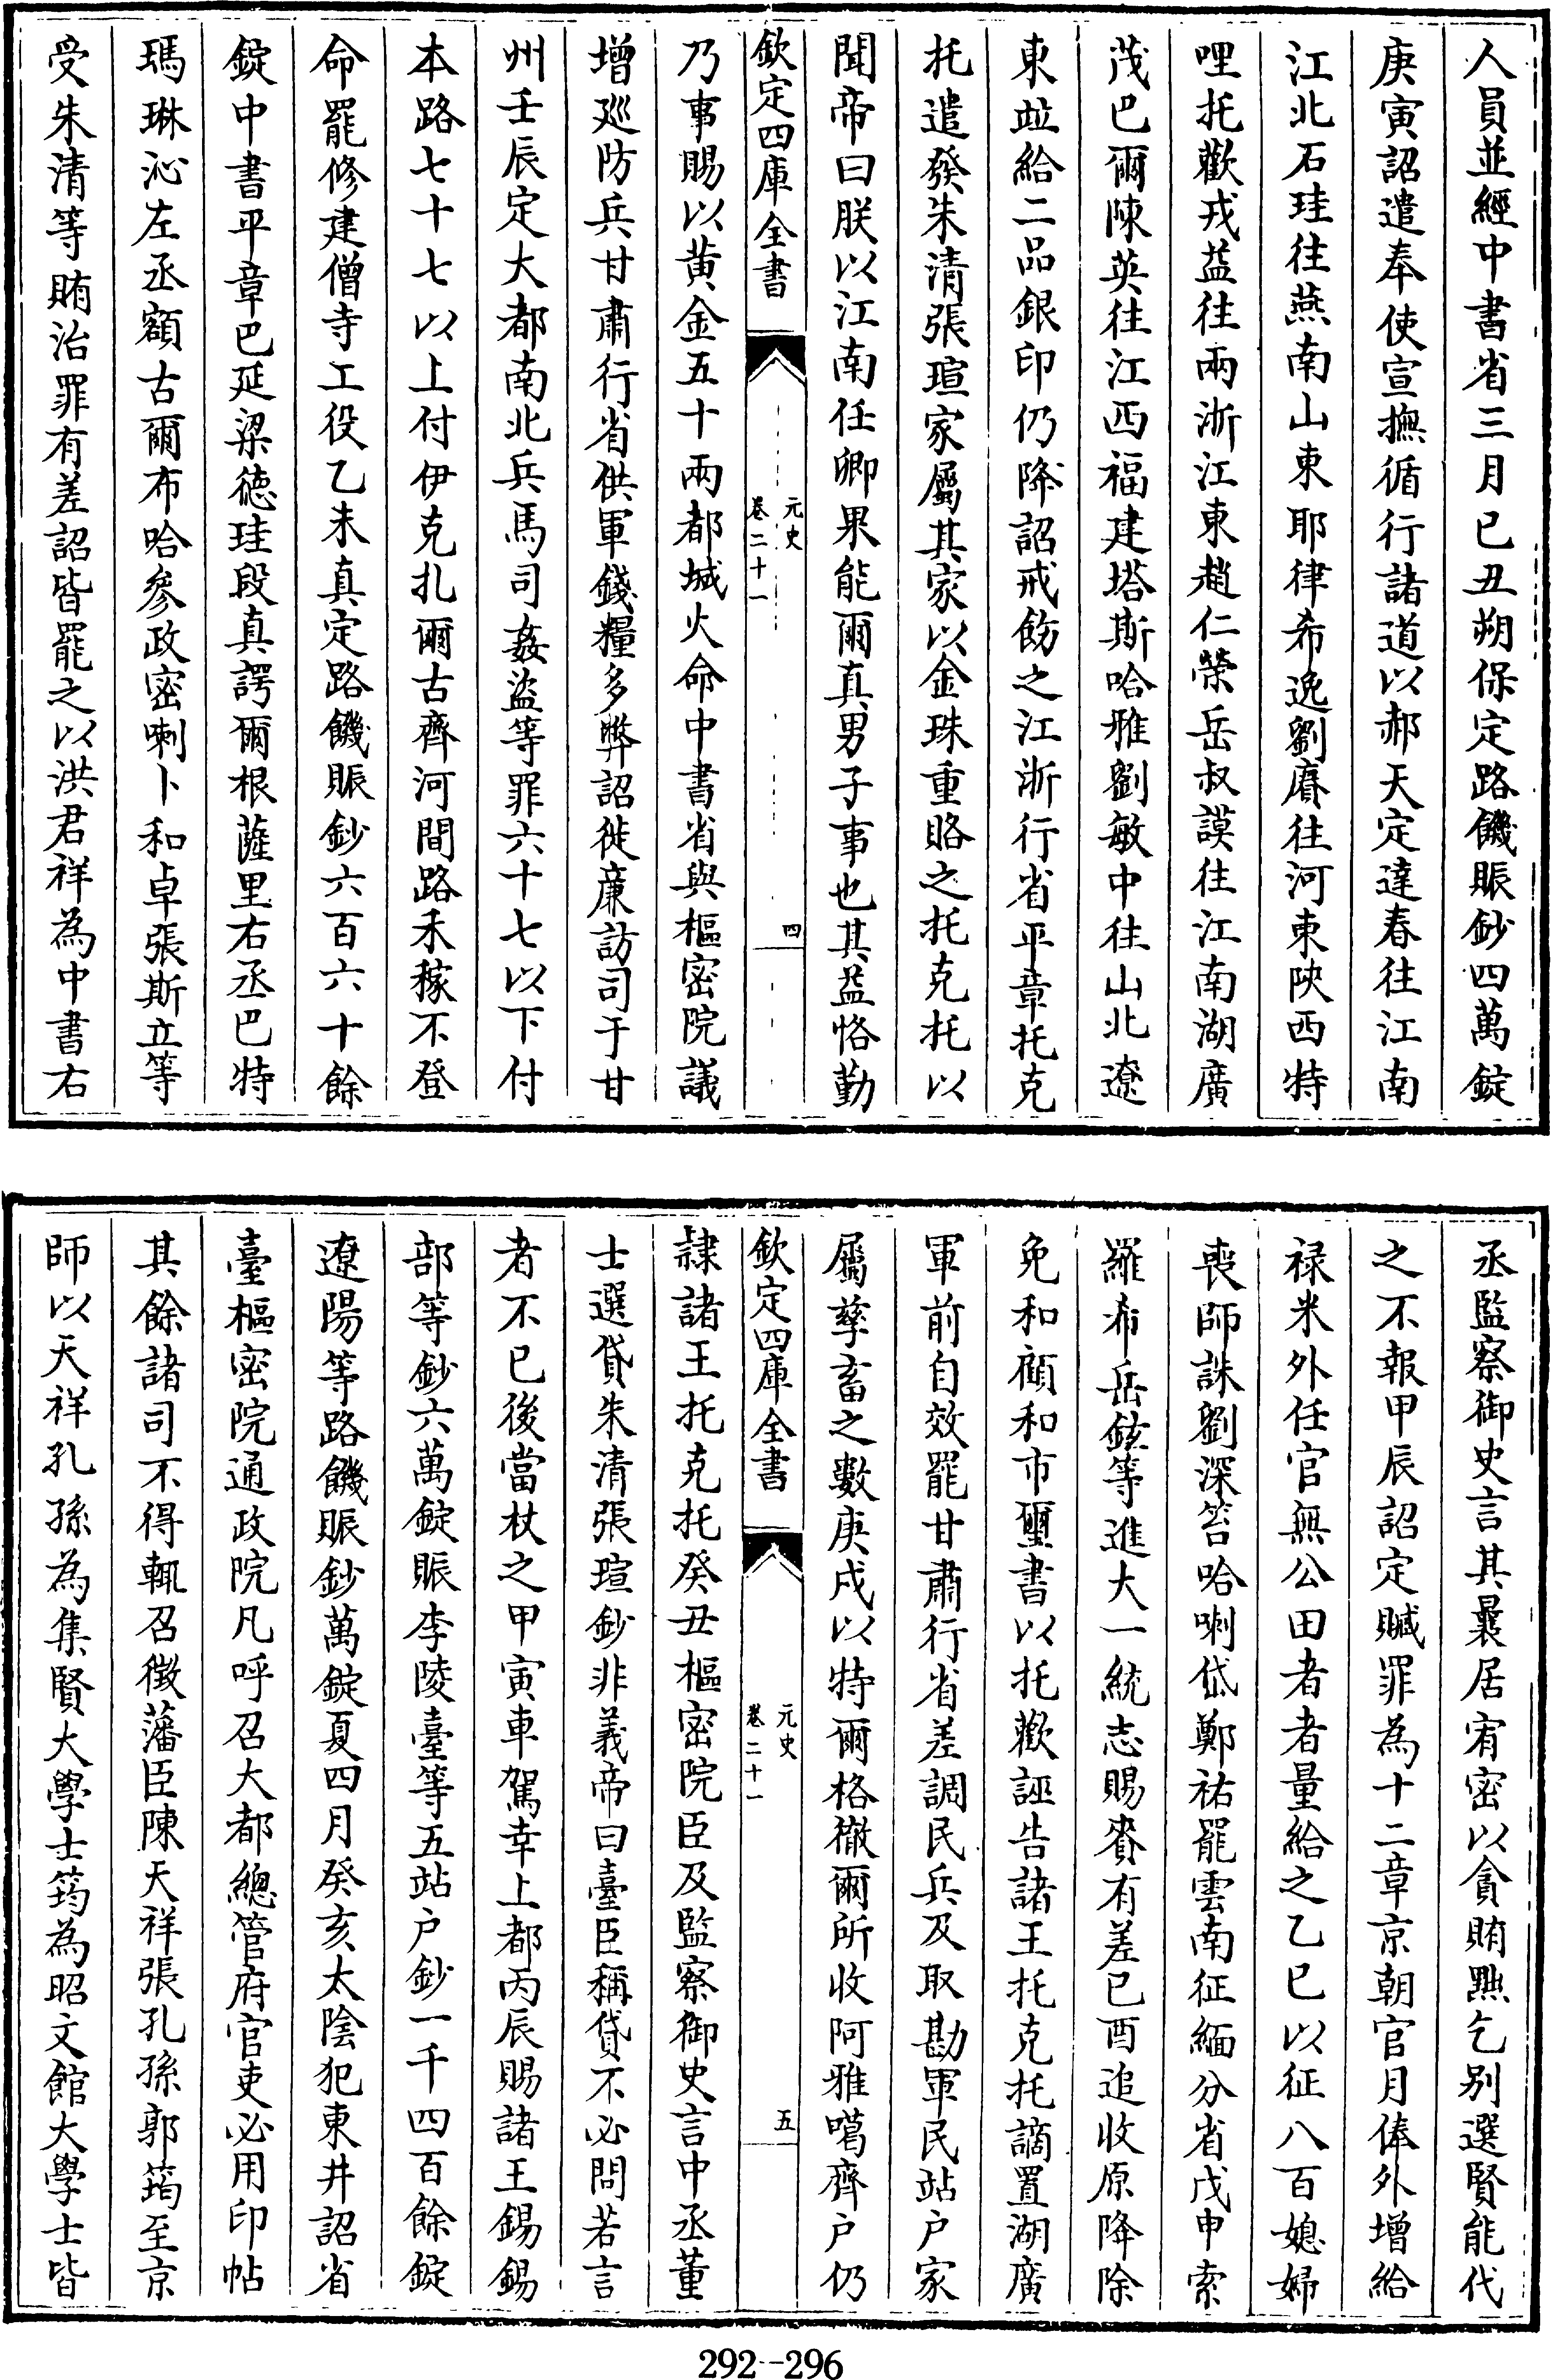 人員並經中書省三月已丑朔保定路饑賑鈔四萬錠
庚寅詔遣奉使宣撫循行諸道以郝天定達春往江南
江北石珪往燕南山東耶律希逸劉賡往河東陜西特
哩托歡戎益往兩浙江東趙仁榮岳叔謨往江南湖廣
茂巴爾陳英往江西福建塔斯哈雅劉敏中往山北遼
東竝給二品銀印仍降詔戒飭之江浙行省平章托克
托遣發朱清張瑄家屬其家以金珠重賂之托克托以
聞帝曰朕以江南任卿果能爾真男子事也其益恪勤
欽定四庫全書
元史
卷二十一
四
乃事賜以黄金五十兩都城火命中書省與樞密院議
增廵防兵甘肅行省供軍錢糧多弊詔徙廉訪司于甘
州壬辰定大都南北兵馬司姦盜等罪六十七以下付
本路七十七以上付伊克扎爾古齊河間路禾稼不登
命罷修建僧寺工役乙未真定路饑賑鈔六百六十餘
錠中書平章巴延梁德珪段真諤爾根薩里右丞巴特
瑪琳沁左丞額古爾布哈參政密喇卜和卓張斯立等
受朱清等賄治罪有差詔皆罷之以洪君祥為中書右
丞監察御史言其曩居宥密以貪賄黜乞别選賢能代
之不報甲辰詔定贓罪為十二章京朝官月俸外增給
禄米外任官無公田者者量給之乙已以征八百媳婦
喪師誅劉深笞哈喇岱鄭祐罷雲南征緬分省戊申索
羅希岳鉉等進大一統志賜賚有差已酉追收原降除
免和顧和市璽書以托歡誣告諸王托克托謫置湖廣
軍前自效罷甘肅行省差調民兵及取勘軍民站户家
屬孳畜之數庚戌以特爾格徹爾所收阿雅噶齊户仍
欽定四庫全書
元史
卷二十一
五
隸諸王托克托癸丑樞密院臣及監察御史言中丞董
士選貸朱清張瑄鈔非義帝曰臺臣稱貸不必問若言
者不已後當杖之甲寅車駕幸上都丙辰賜諸王錫錫
部等鈔六萬錠賑李陵臺等五站户鈔一千四百餘錠
遼陽等路饑賑鈔萬錠夏四月癸亥太陰犯東井詔省
臺樞密院通政院凡呼召大都總管府官吏必用印帖
其餘諸司不得輒召徵藩臣陳天祥張孔孫郭筠至京
師以天祥孔孫為集賢大學士筠為昭文館大學士皆
292--296